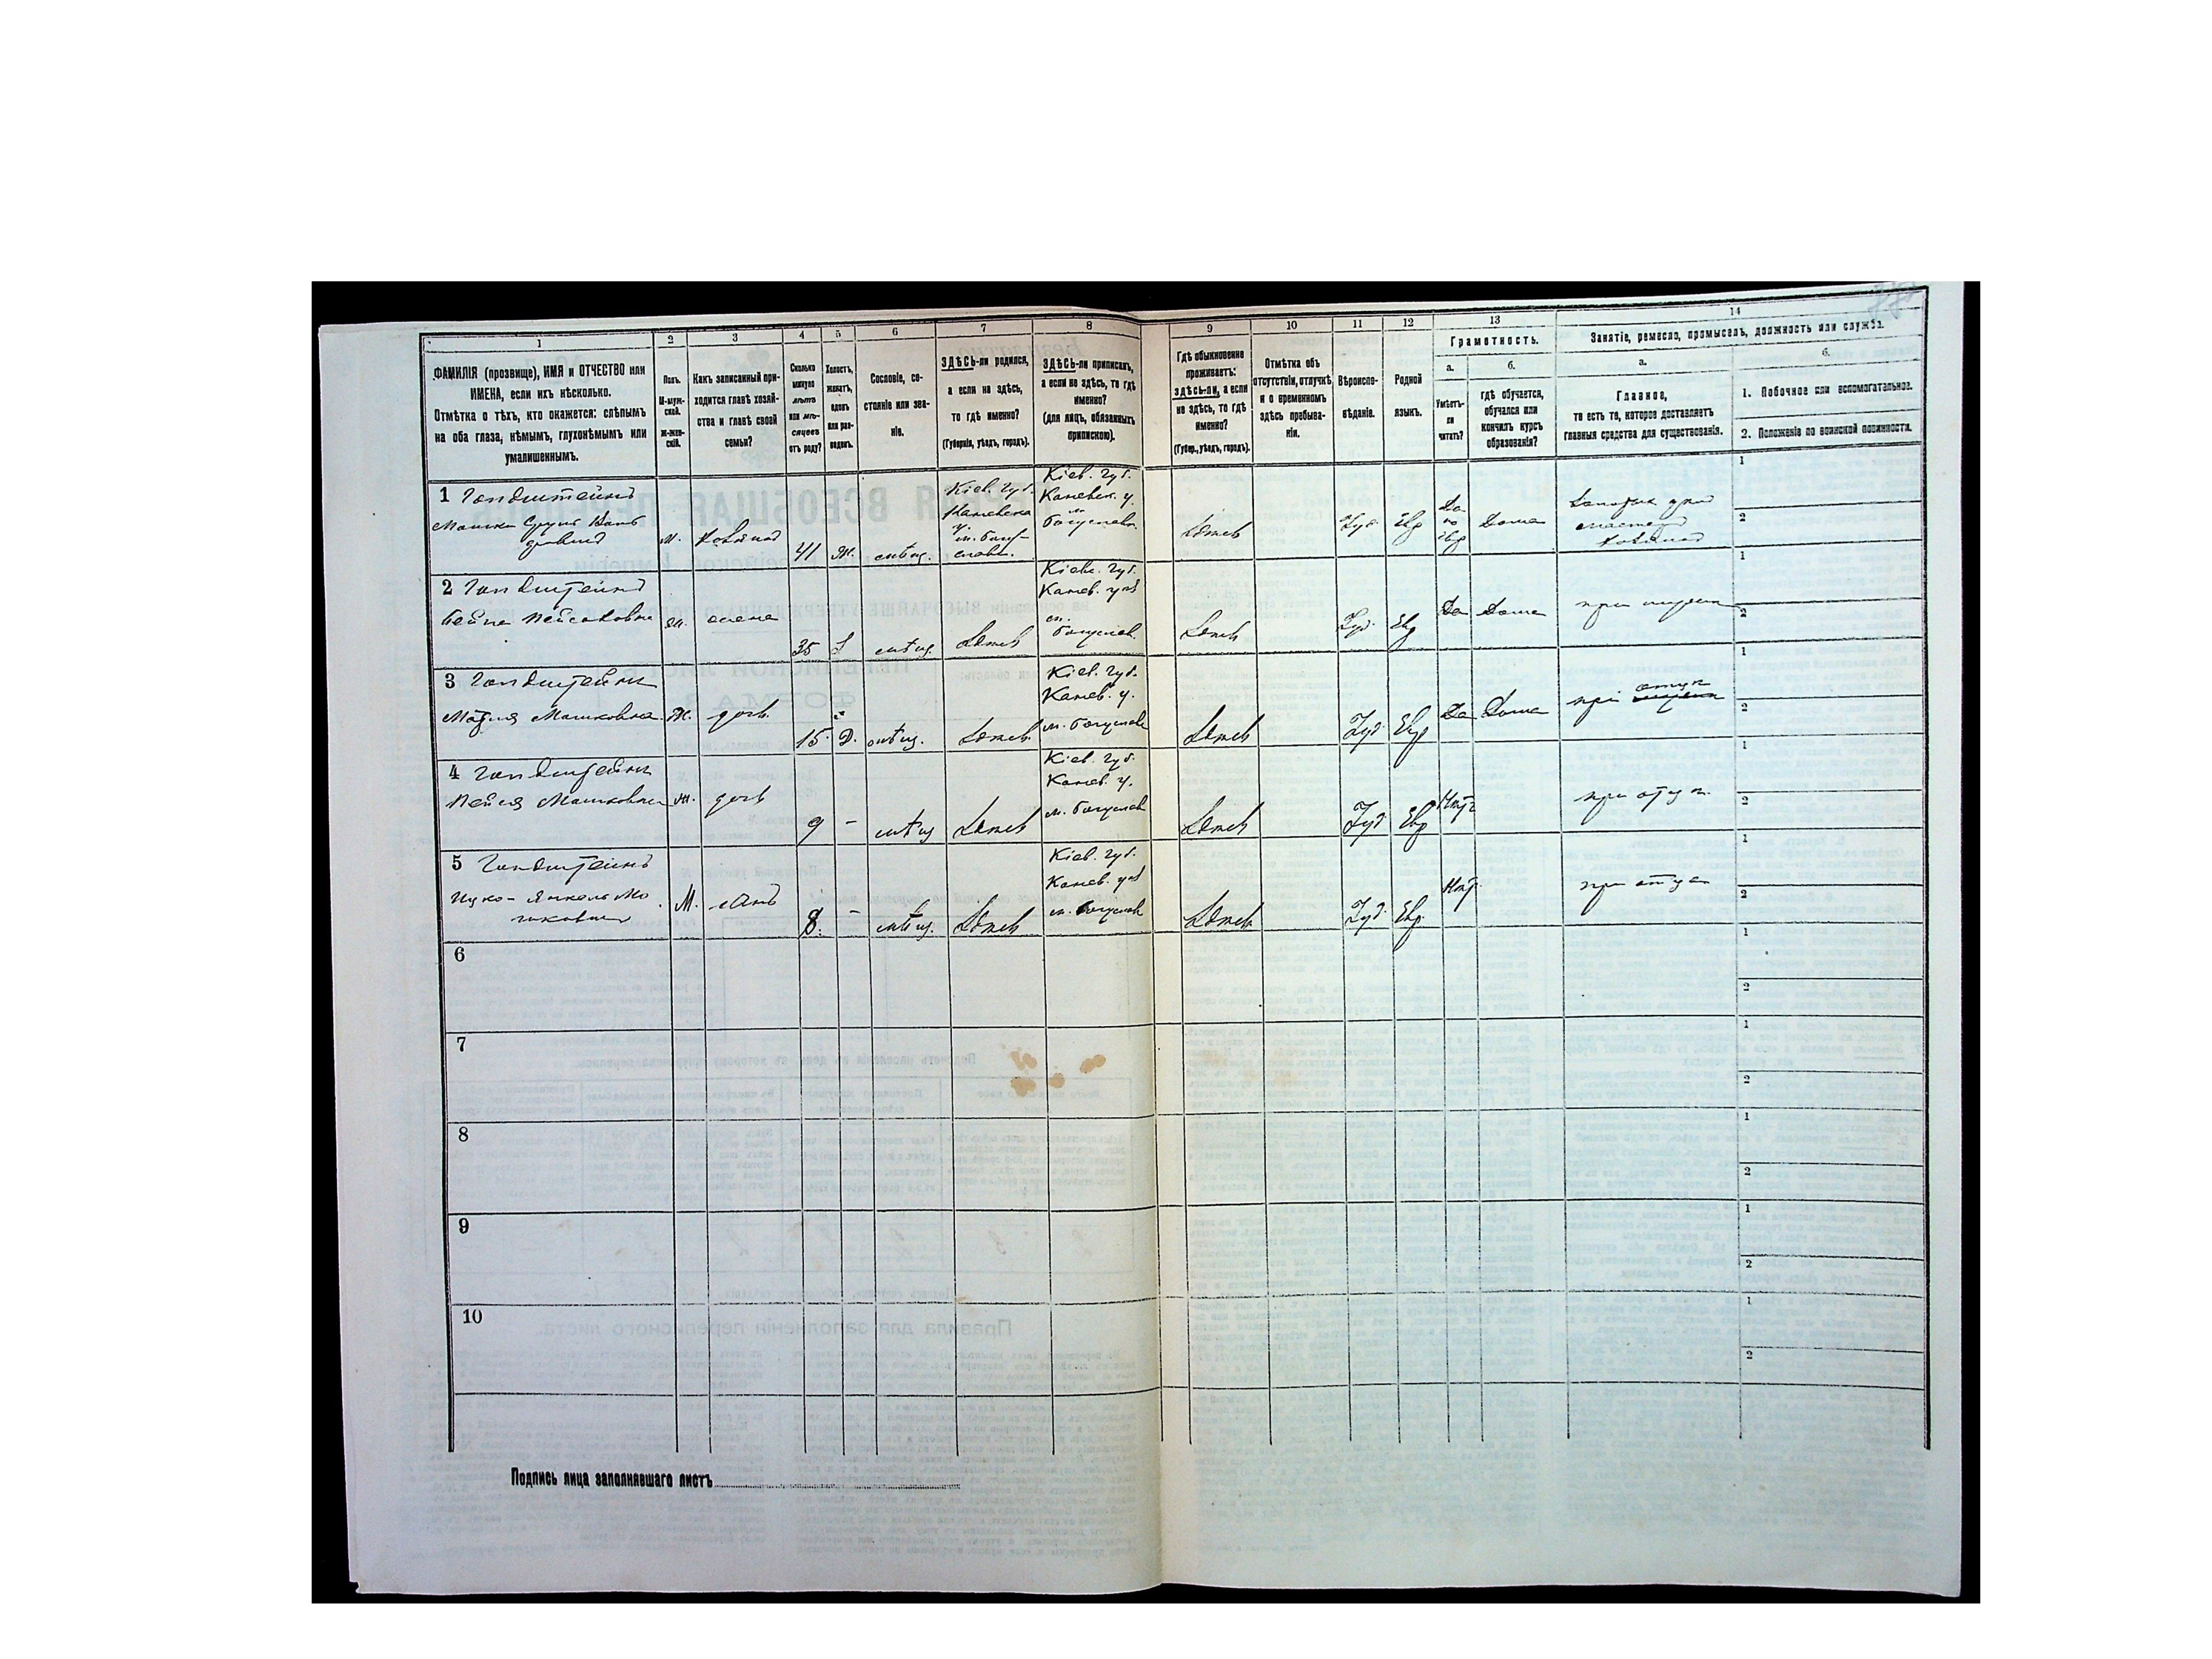 1 2 3 4 5 6 7 8 9 10 11 12 13 14
ФАМИЛІЯ (прозвище), ИМЯ и ОТЧЕСТВО или
ИМЕНА, если ихъ нѣсколько.
Отмѣтка о тѣхъ, кто окажется: слѣпымъ
на оба глаза, нѣмымъ, глухонѣмымъ или
умалишеннымъ.
Полъ.
М-муж-
ской.
Ж-жен-
скій.
Какъ записанный при-
ходится главѣ хозяй-
ства и главѣ своей
семьи?
Сколько
минуло
лѣтъ
или мѣ-
сяцевъ
отъ роду?
Холостъ,
женатъ,
вдовъ
или раз-
веденъ.
Сословіе, со-
стояніе или зва-
ніе.
ЗДѢСЬ-ли родился,
а если не здѣсь,
то гдѣ именно?
(Губернія, уѣздъ, городъ).
ЗДѢСЬ-ли приписанъ,
а если не здѣсь, то гдѣ
именно?
(для лицъ, обязанныхъ
припискою).
Гдѣ обыкновенно
проживаетъ:
ЗДѢСЬ-ли, а если
не здѣсь, то гдѣ
именно?
(Губер., уѣздъ, городъ).
Отмѣтка объ
отсутствіи, отлучкѣ
и о временномъ
здѣсь пребыва-
ніи.
Вѣроиспо-
вѣданіе.
Родной
языкъ.
Грамотность.
а.
Умѣетъ-
ли
читать?
б.
гдѣ обучается,
обучался или
кончилъ курсъ
образованія?
Занятіе, ремесло, промыселъ, должность или служба.
а.
Главное,
то есть то, которое доставляетъ
главныя средства для существованія.
б.
1. Побочное или вспомогательное.
2. Положеніе по воинской повинности.
1 Гольдштейнъ
Мошко Сруль
М.
41 Ж. мѣщ.
Кіев. губ.
Каневска
у.
м. Богу-
слава.
Кіев. губ.
Каневск. у.
м.
Богуслава
Здѣсь
Іуд. Евр
Да
по
Евр
Дома
1
2
2 Гольдштейнъ
Бейла Пейсаховна
Ж. жена
35 З мѣщ. Здѣсь
Кіевс. губ.
Канев. уѣз
м.
Богуслав.
Здѣсь
Іуд. Евр
Да Дома при мужѣ
1
2
3 Гольдштейнъ
Мошковна
Ж. дочь
15 Д. мѣщ. Здѣсь
Кіев. губ.
Канев. у.
м. Богуслава
Здѣсь
Іуд. Евр
Да Дома при отцѣ
1
2
4 Гольдштейнъ
Пейся Мошковна
Ж. дочь
9 - мѣщ Здѣсь
Кіев. губ.
Канев. у.
м. Богуслав
Здѣсь
Іуд Евр
Нѣтъ
при отцѣ
1
2
5 Гольдштейнъ
Ицко-Янкель Мо
шковичъ
М. сынъ
8. - мѣщ. Здѣсь
Кіев. губ.
Канев. уѣз
м. Богуслав
Здѣсь
Іуд. Евр.
Нѣт.
при отцѣ
1
2
6
1
2
7
1
2
8
1
2
9
1
2
10
1
2
Подпись лица заполнявшаго листъ